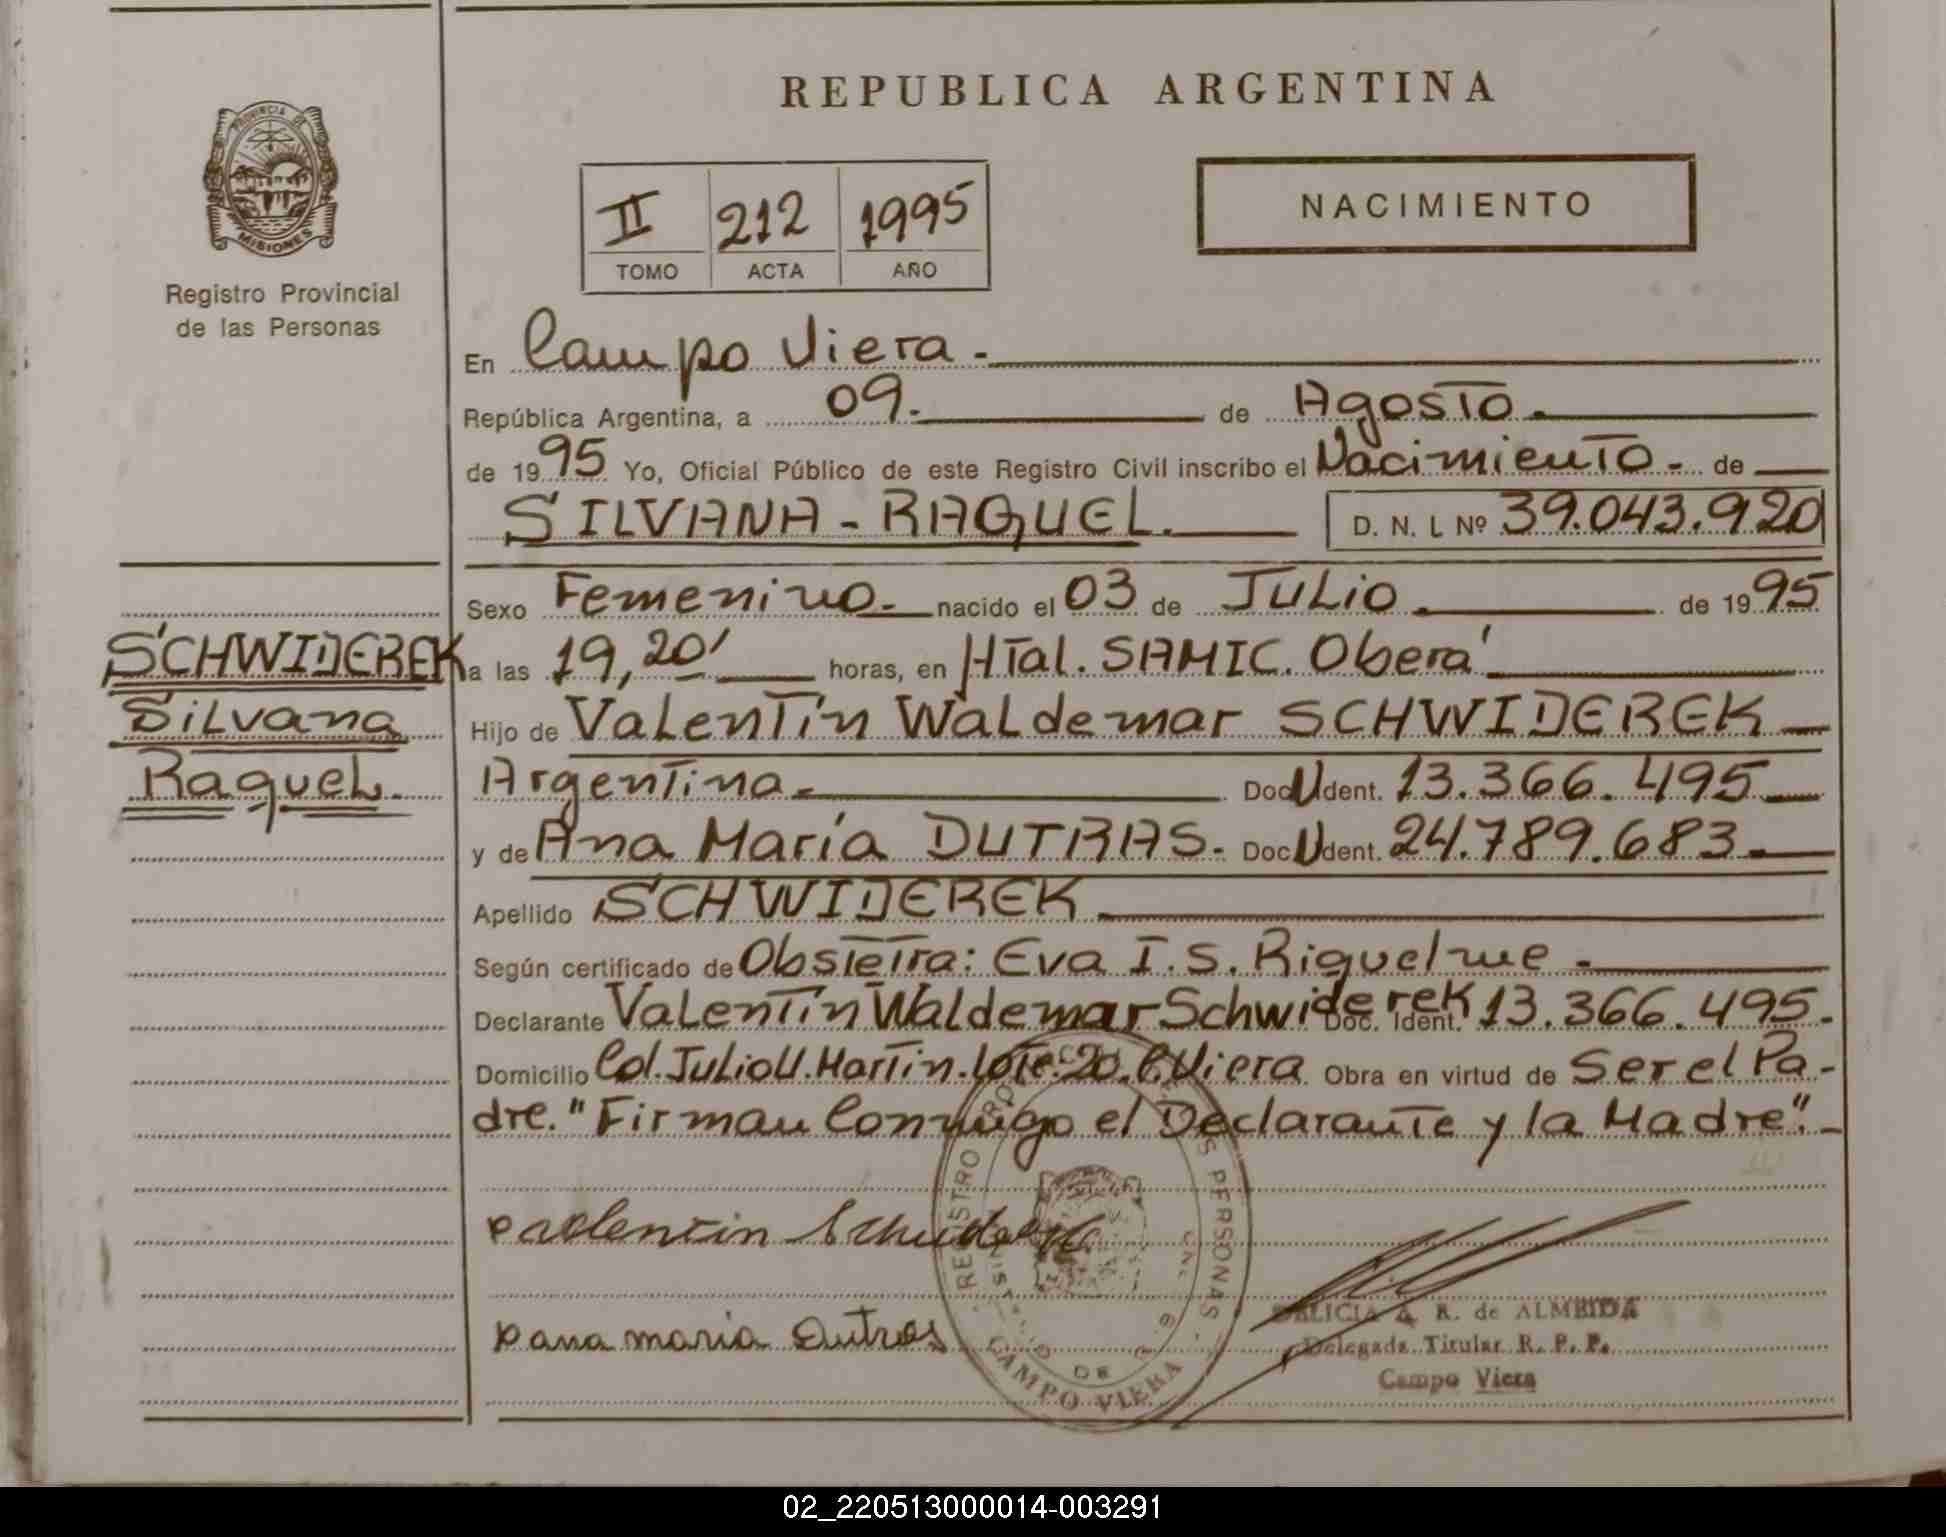 REPUBLICA ARGENTINA
PROVINCIA DE
MISIONES
Registro Provincial
de las Personas
II 212 1995
TOMO ACTA AÑO
NACIMIENTO
En Campo Viera.-
República Argentina, a 09.- de Agosto.-
de 1995 Yo, Oficial Público de este Registro Civil inscribo el Nacimiento.- de
SILVANA - RAQUEL.- D. N. I. Nº 39.043.920
Sexo Femenino.- nacido el 03 de Julio.- de 1995
a las 19,20' horas, en Htal. SAMIC. Oberá
Hijo de Valentín Waldemar SCHWIDEREK
Argentina.- Doc U Ident. 13.366.495
y de Ana María DUTRAS.- Doc U Ident. 24.789.683.-
Apellido SCHWIDEREK
Según certificado de Obstetra: Eva I. S. Riquelme.-
Declarante Valentín Waldemar Schwiderek Doc. Ident. 13.366.495.
Domicilio Col. Julio U. Martin. Lote. 20. C. Viera Obra en virtud de Ser el Pa-
dre. "Firman Conmigo el Declarante y la Madre".-
SCHWIDEREK
Silvana
Raquel.
Valentin Schwiderek
ana maria Dutras
REGISTRO PERSONAS
DE
CAMPO VIERA
ALICIA A. R. de ALMEIDA
Delegada Titular R. P. P.
Campo Viera
02_220513000014-003291